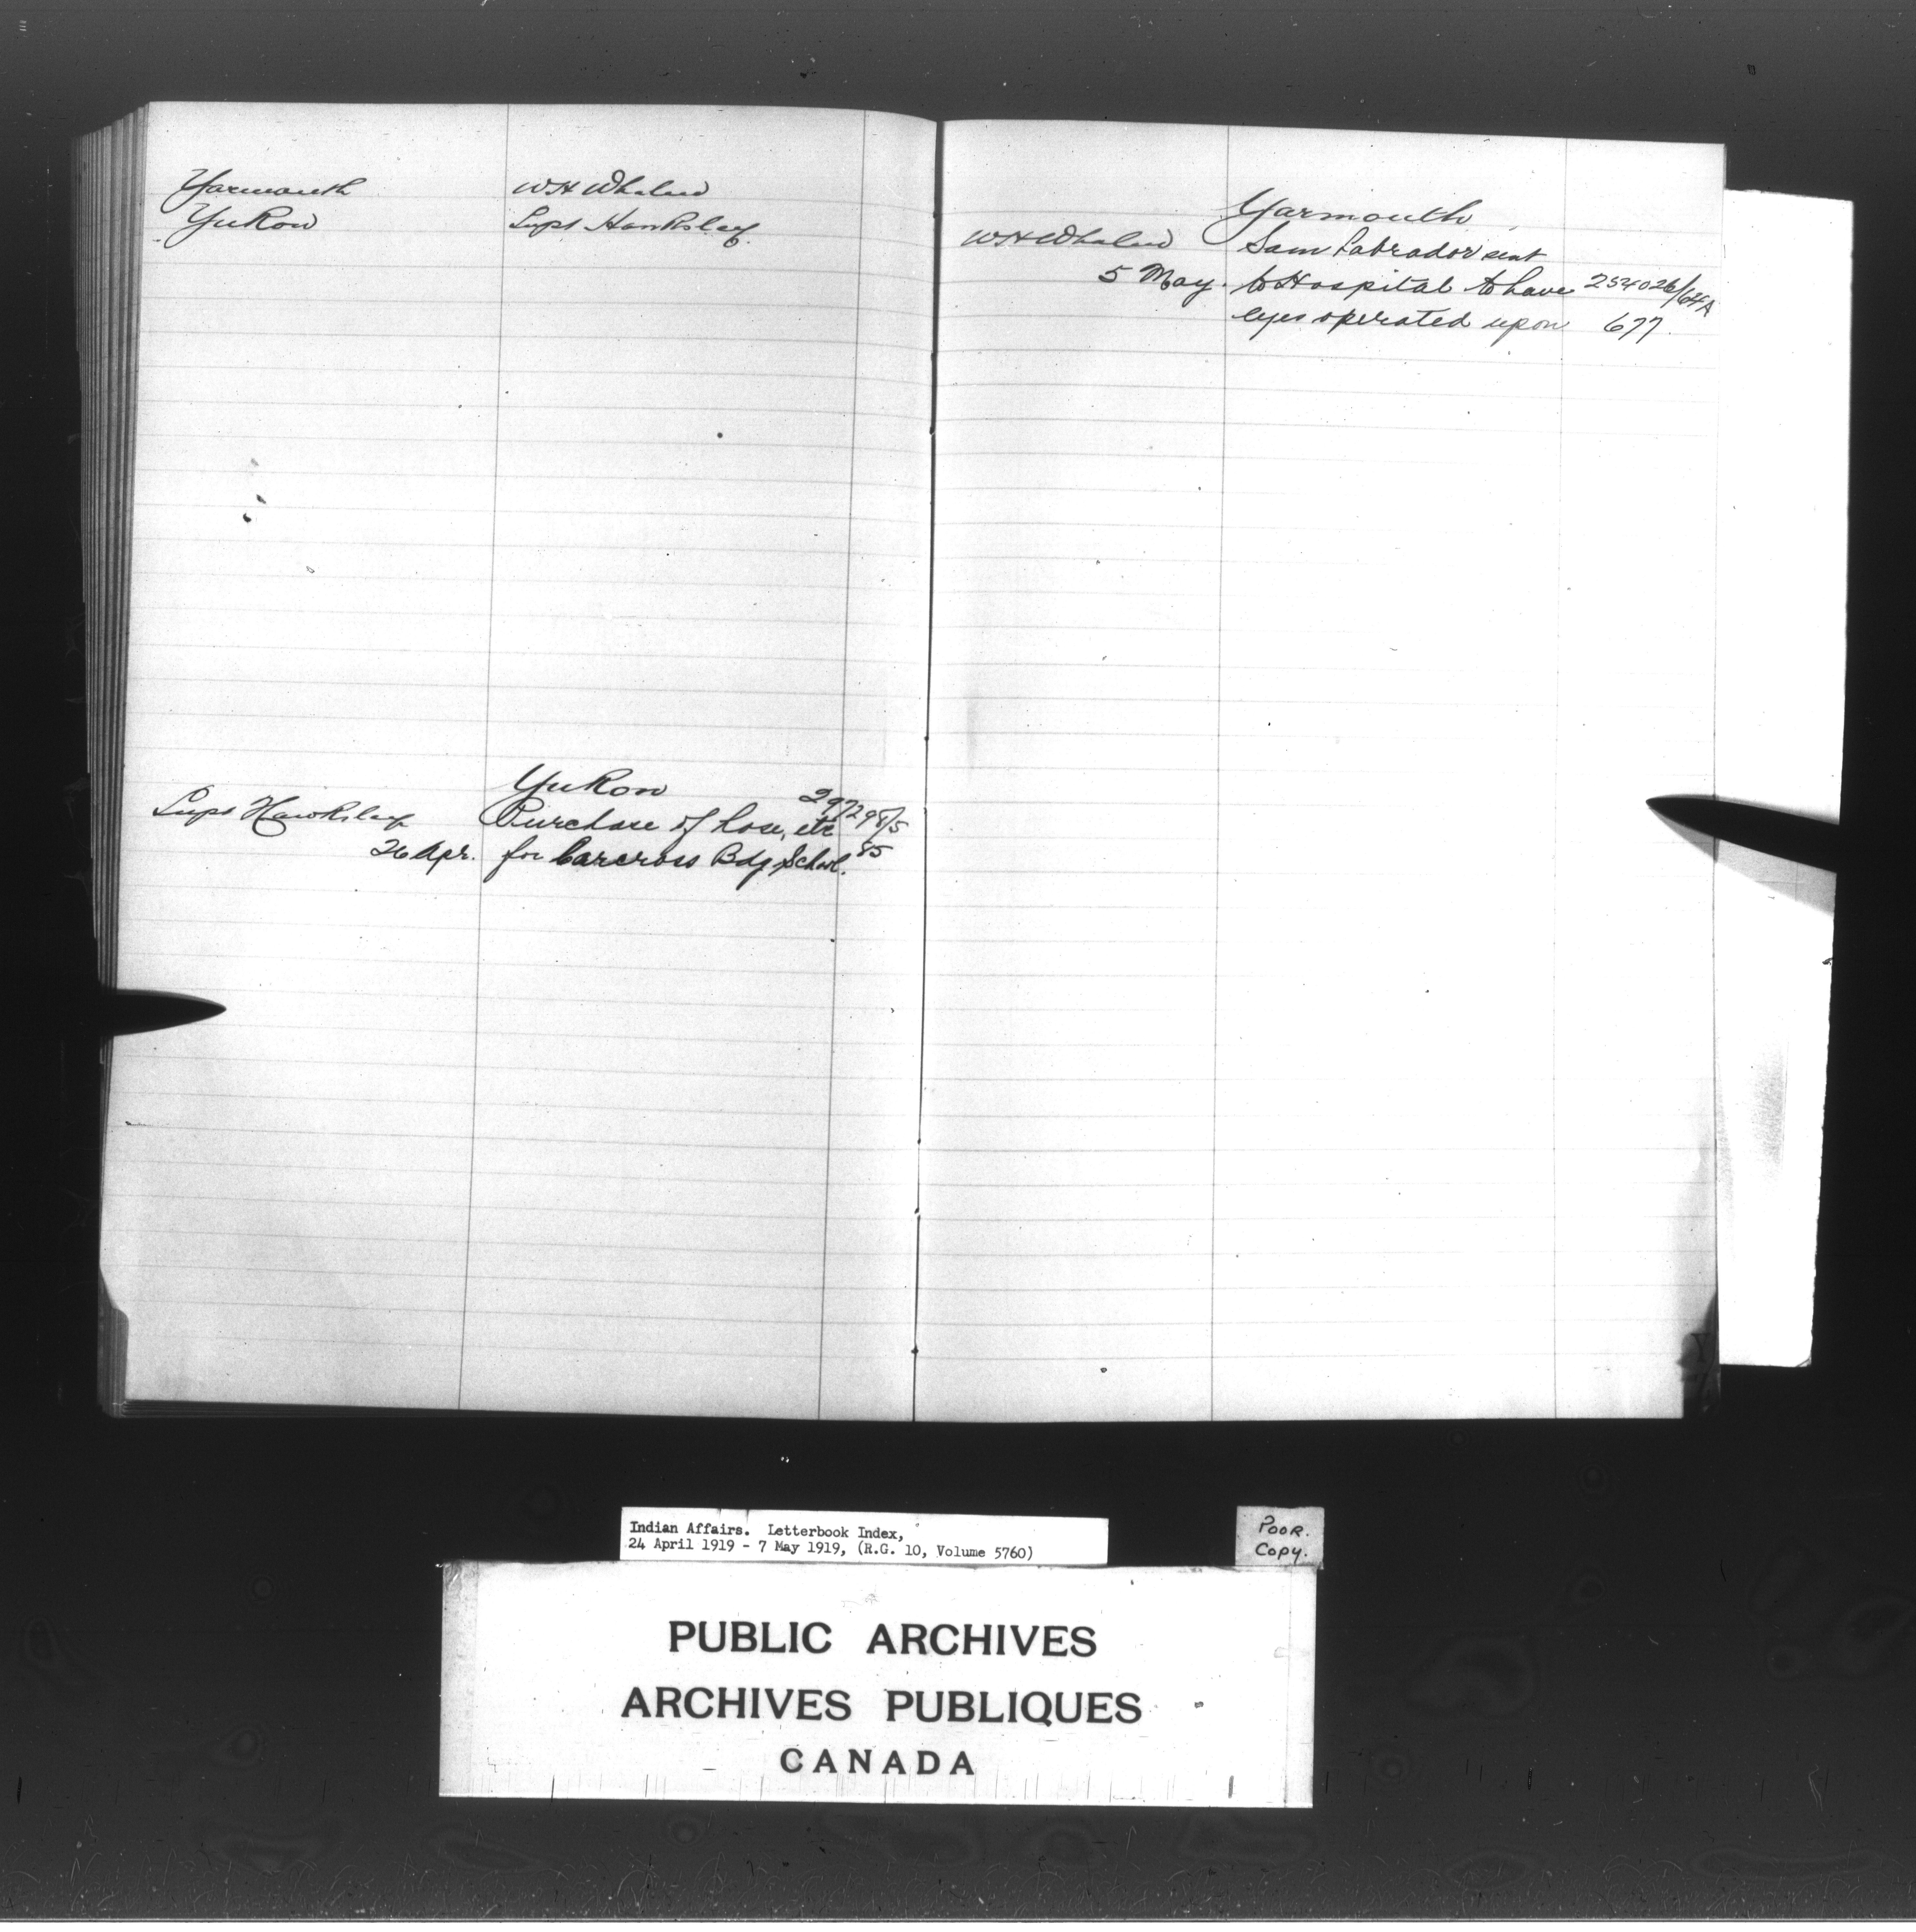 Yarmouth W H Whalen
Yukon Supt Hawksley.
Yukon
Supt Hawksley Purchase of hose, etc 297298/5
26 Apr. for Carcross Bdg School. 85
Yarmouth
W H Whalen Sam Labrador sent
5 May. to Hospital to have 254026/64A
eyes operated upon 677.
Indian Affairs. Letterbook Index,
24 April 1919 - 7 May 1919, (R.G. 10, Volume 5760)
POOR.
COPY.
PUBLIC ARCHIVES
ARCHIVES PUBLIQUES
CANADA